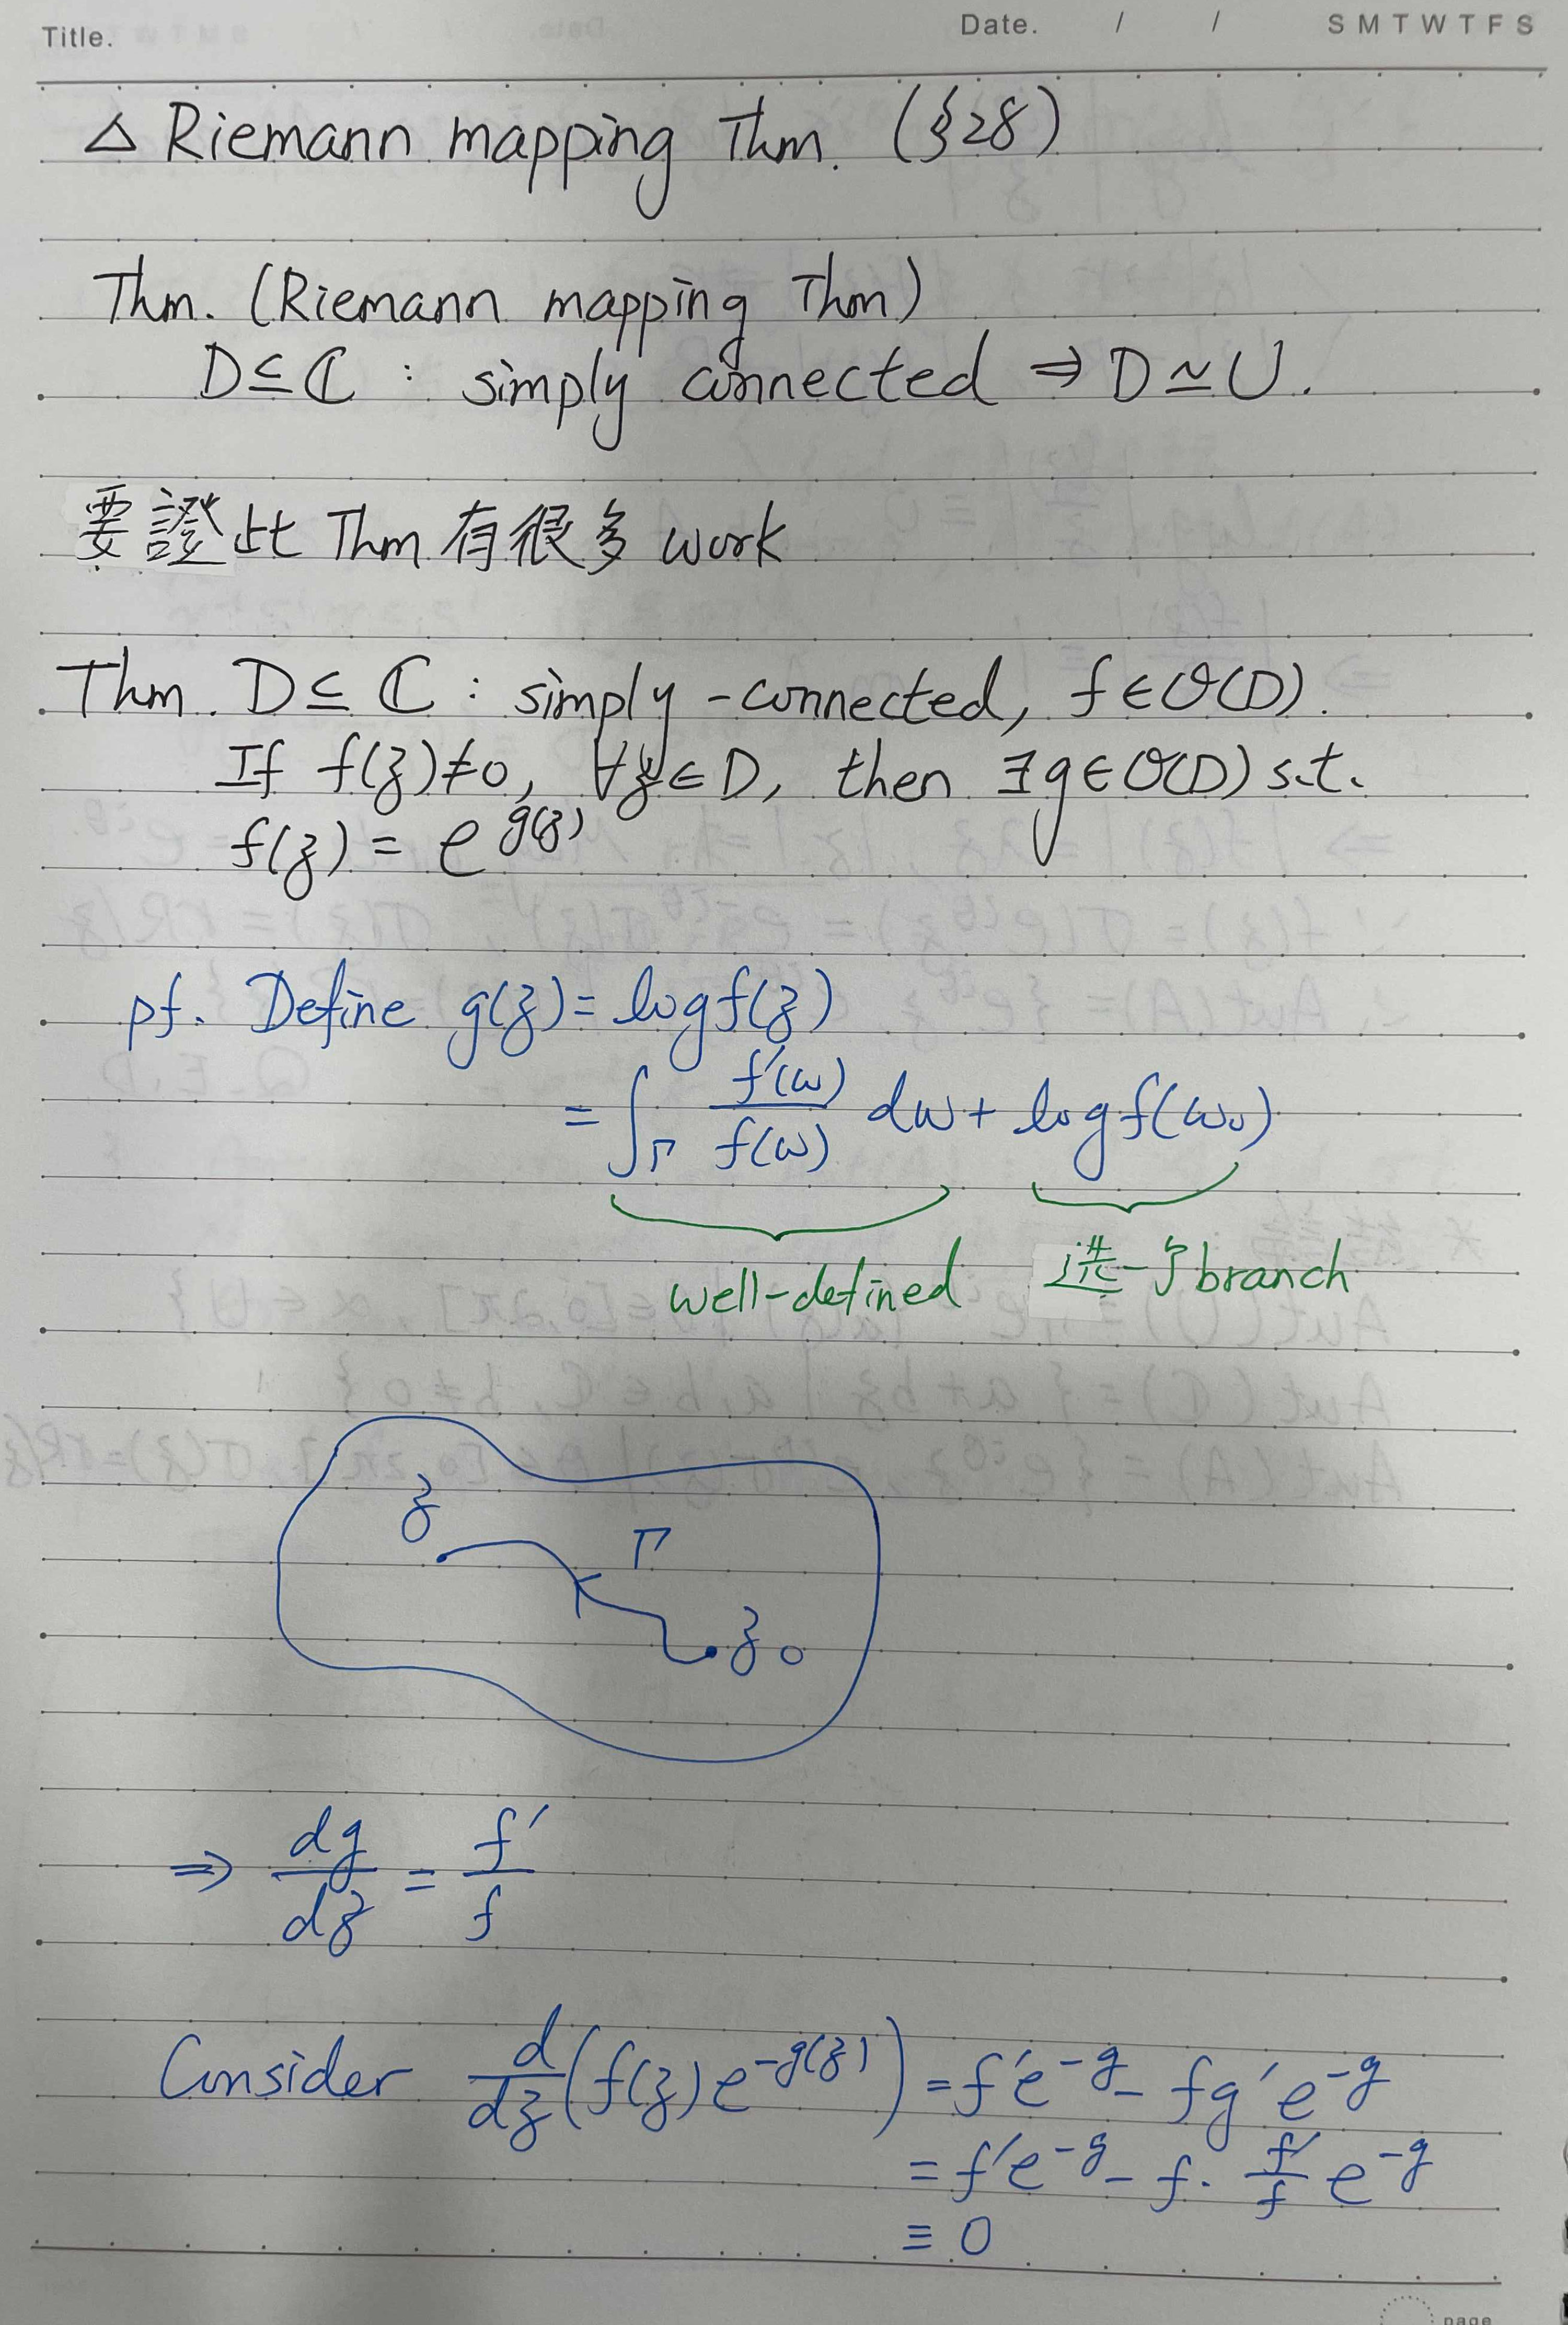 Title.
Date. / / S M T W T F S
△ Riemann mapping Thm. (§28)
Thm. (Riemann mapping Thm)
D⊆ℂ : simply connected ⇒ D≃U.
要證此 Thm 有很多 work
Thm. D⊆ℂ : simply-connected, f∈O(D).
If f(z)≠0, ∀z∈D, then ∃g∈O(D) s.t.
f(z) = e^{g(z)}
pf. Define g(z) = log f(z)
= ∫_Γ f'(ω)/f(ω) dω + log f(ω₀)
well-defined 选一个 branch
z Γ
z₀
⇒ dg/dz = f'/f
Consider d/dz (f(z)e^{-g(z)}) = f'e^{-g} - fg'e^{-g}
= f'e^{-g} - f · f'/f e^{-g}
≡ 0
page